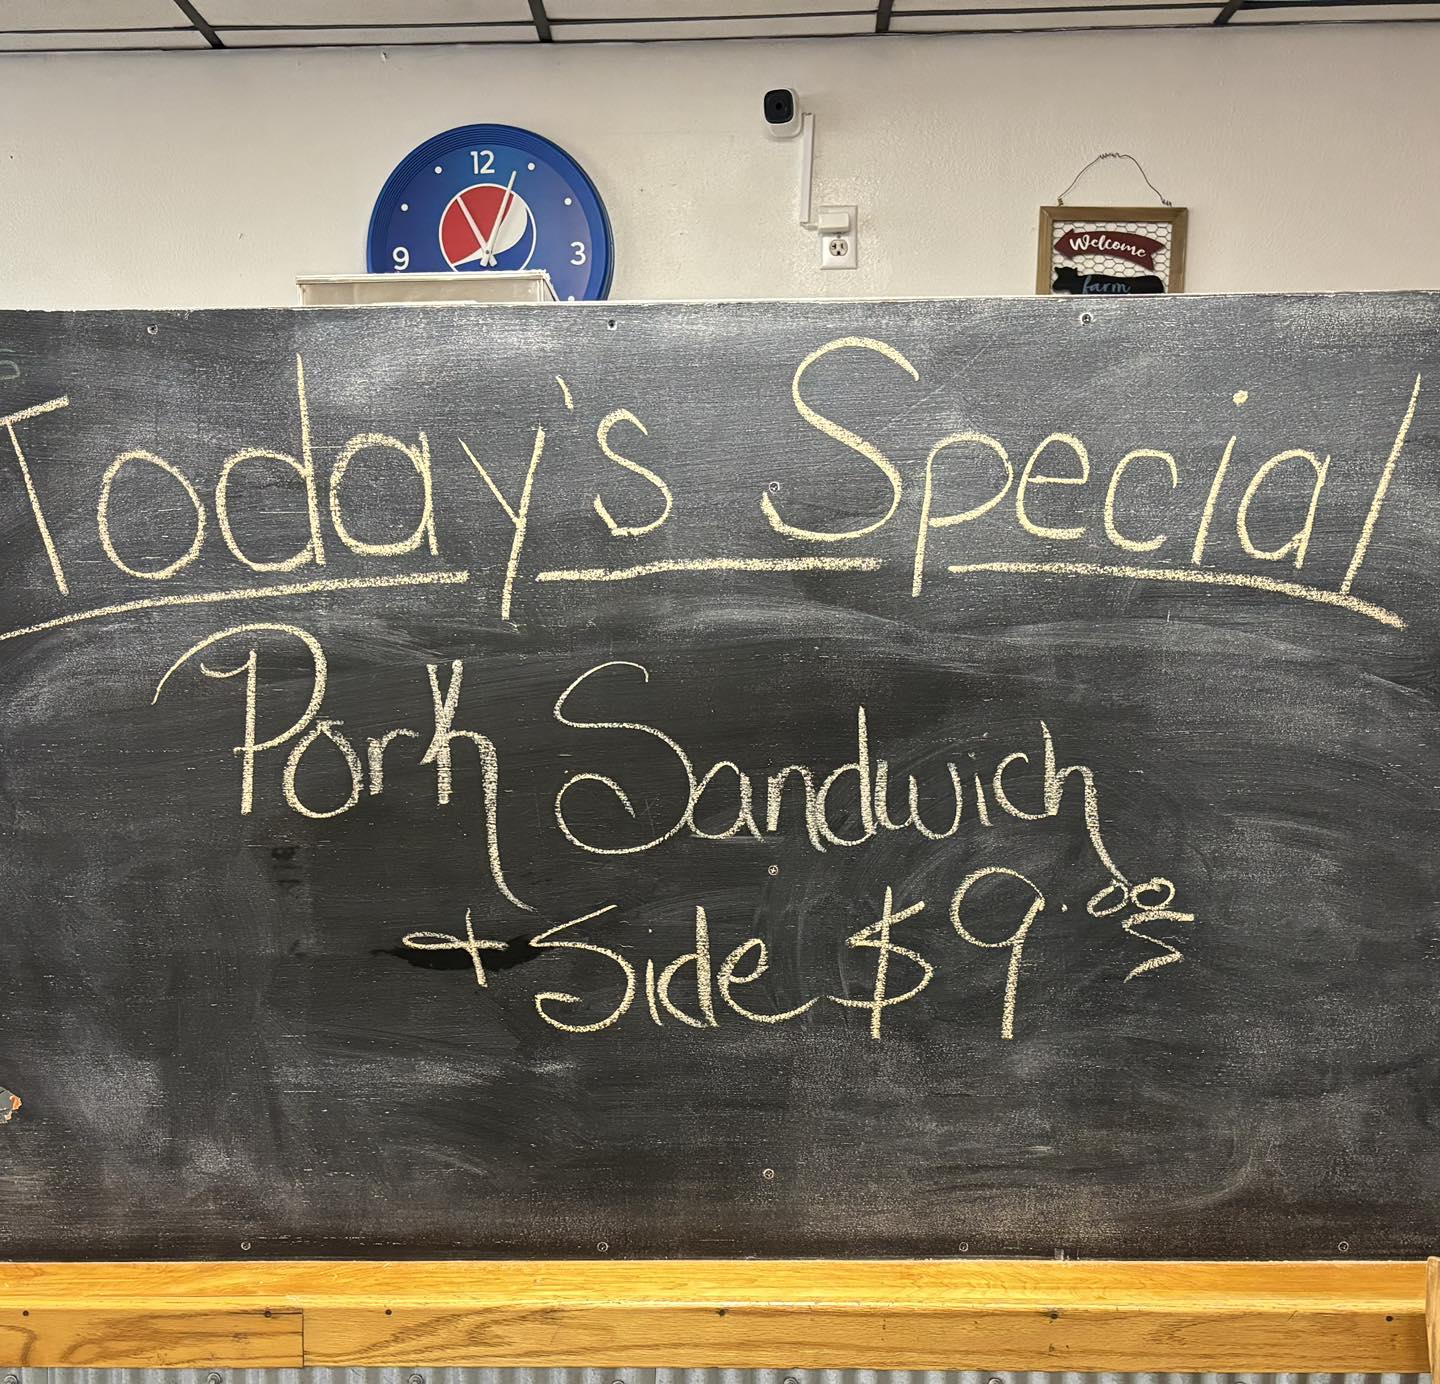 12
9 3
Welcome
farm
Today's Special
Pork Sandwich
+ Side $9.00